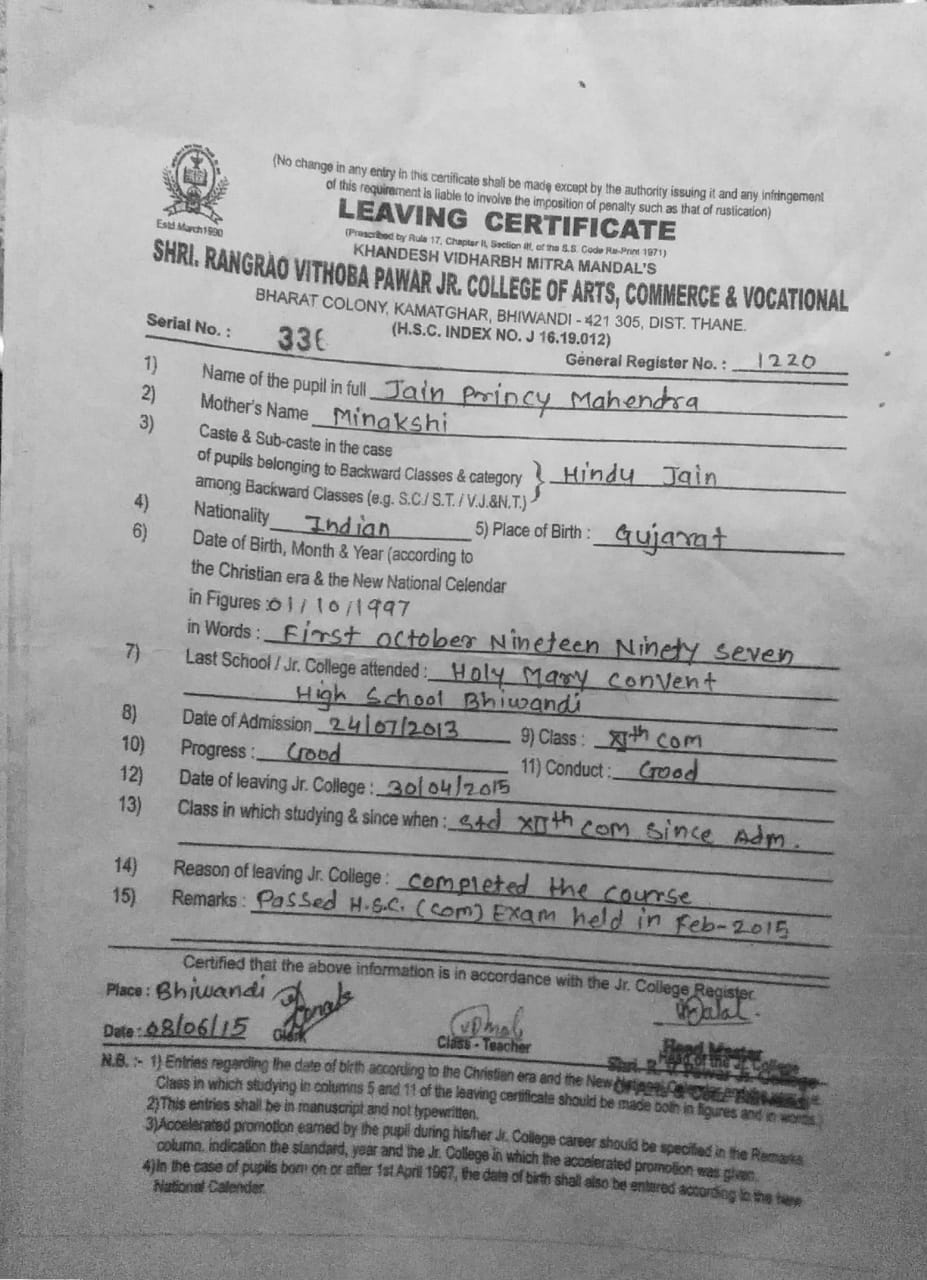 (No change in any entry in this certificate shall be made except by the authority issuing it and any infringement
of this requirement is liable to involve the imposition of penalty such as that of rustication)
LEAVING CERTIFICATE
Estd. March 1990
(Prescribed by Rule 17, Chapter II, Section III, of the S.S. Code Re-Print 1971)
KHANDESH VIDHARBH MITRA MANDAL'S
SHRI. RANGRAO VITHOBA PAWAR JR. COLLEGE OF ARTS, COMMERCE & VOCATIONAL
BHARAT COLONY, KAMATGHAR, BHIWANDI - 421 305, DIST. THANE.
(H.S.C. INDEX NO. J 16.19.012)
Serial No. : 336
General Register No. : 1220
1) Name of the pupil in full Jain Princy Mahendra
2) Mother's Name Minakshi
3) Caste & Sub-caste in the case
of pupils belonging to Backward Classes & category } Hindu Jain
among Backward Classes (e.g. S.C./ S.T. / V.J.&N.T.)
4) Nationality Indian 5) Place of Birth : Gujarat
6) Date of Birth, Month & Year (according to
the Christian era & the New National Celendar
in Figures :01/10/1997
in Words : First October Nineteen Ninety Seven
7) Last School / Jr. College attended : Holy Mary Convent
High School Bhiwandi
8) Date of Admission 24/07/2013 9) Class : XIth com
10) Progress : Good 11) Conduct : Good
12) Date of leaving Jr. College : 30/04/2015
13) Class in which studying & since when : Std XIIth com since Adm.
14) Reason of leaving Jr. College : completed the course
15) Remarks : Passed H.S.C. (com) Exam held in Feb-2015
Certified that the above information is in accordance with the Jr. College Register
Place : Bhiwandi
Date : 08/06/15 Clerk Class - Teacher Head of the Jr. College
Head Master
N.B. :- 1) Entries regarding the date of birth according to the Christian era and the New National Calendar and the
Class in which studying in columns 5 and 11 of the leaving certificate should be made both in figures and in words.
2)This entries shall be in manuscript and not typewritten.
3)Accelerated promotion earned by the pupil during his/her Jr. College career should be specified in the Remarks
column, indication the standard, year and the Jr. College in which the accelerated promotion was given.
4)In the case of pupils born on or after 1st April 1967, the date of birth shall also be entered according to the New
National Calender.